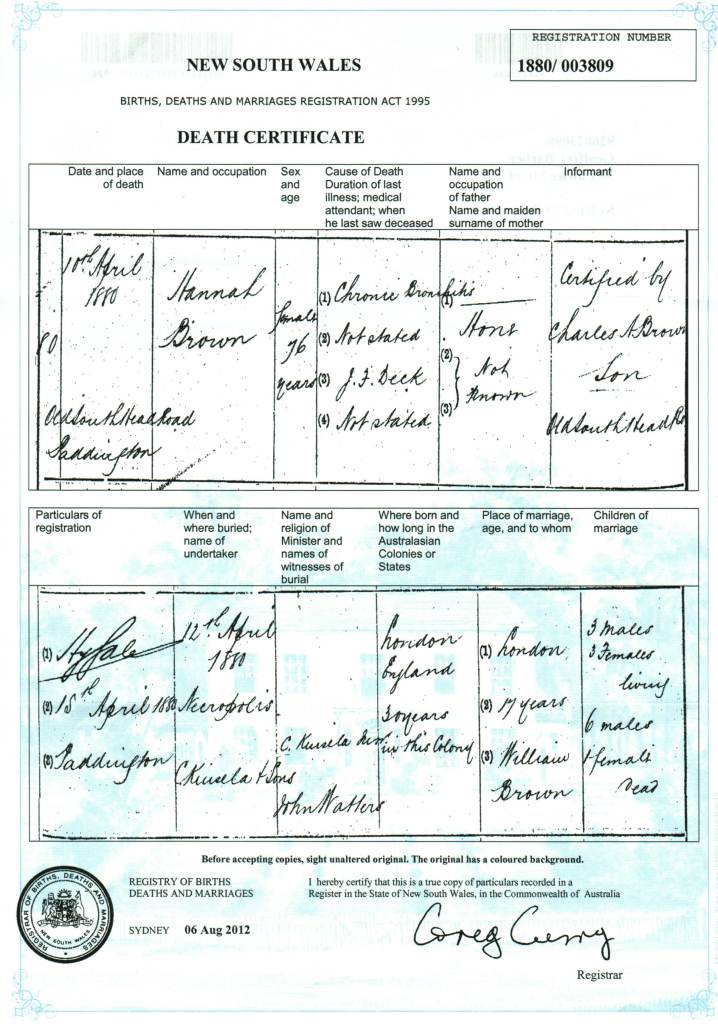 REGISTRATION NUMBER
1880/ 003809
NEW SOUTH WALES
BIRTHS, DEATHS AND MARRIAGES REGISTRATION ACT 1995
DEATH CERTIFICATE
Date and place
of death
Name and occupation
Sex
and
age
Cause of Death
Duration of last
illness; medical
attendant; when
he last saw deceased
Name and
occupation
of father
Name and maiden
surname of mother
Informant
80
10th April
1880
Old South Head Road
Paddington
Hannah
Brown
Female
76
years
(1) Chronic Bronchitis
(2) Not stated
(3) J. F. Deck
(4) Not stated
(1)
Hons
(2)
Not
Known
(3)
Certified by
Charles A Brown
Son
Old South Head Rd
Particulars of
registration
When and
where buried;
name of
undertaker
Name and
religion of
Minister and
names of
witnesses of
burial
Where born and
how long in the
Australasian
Colonies or
States
Place of marriage,
age, and to whom
Children of
marriage
(1) Hy Sale
(2) 15th April 1880
(3) Paddington
12th April
1880
Necropolis
C Kinsela & Sons
C. Kinsela Jun
John Watters
London
England
30 years
in this Colony
(1) London
(2) 17 years
(3) William
Brown
3 males
3 Females
living
6 males
1 female
dead
Before accepting copies, sight unaltered original. The original has a coloured background.
REGISTRAR OF BIRTHS, DEATHS AND MARRIAGES
NEW SOUTH WALES
REGISTRY OF BIRTHS
DEATHS AND MARRIAGES
SYDNEY 06 Aug 2012
I hereby certify that this is a true copy of particulars recorded in a
Register in the State of New South Wales, in the Commonwealth of Australia
Greg Curry
Registrar